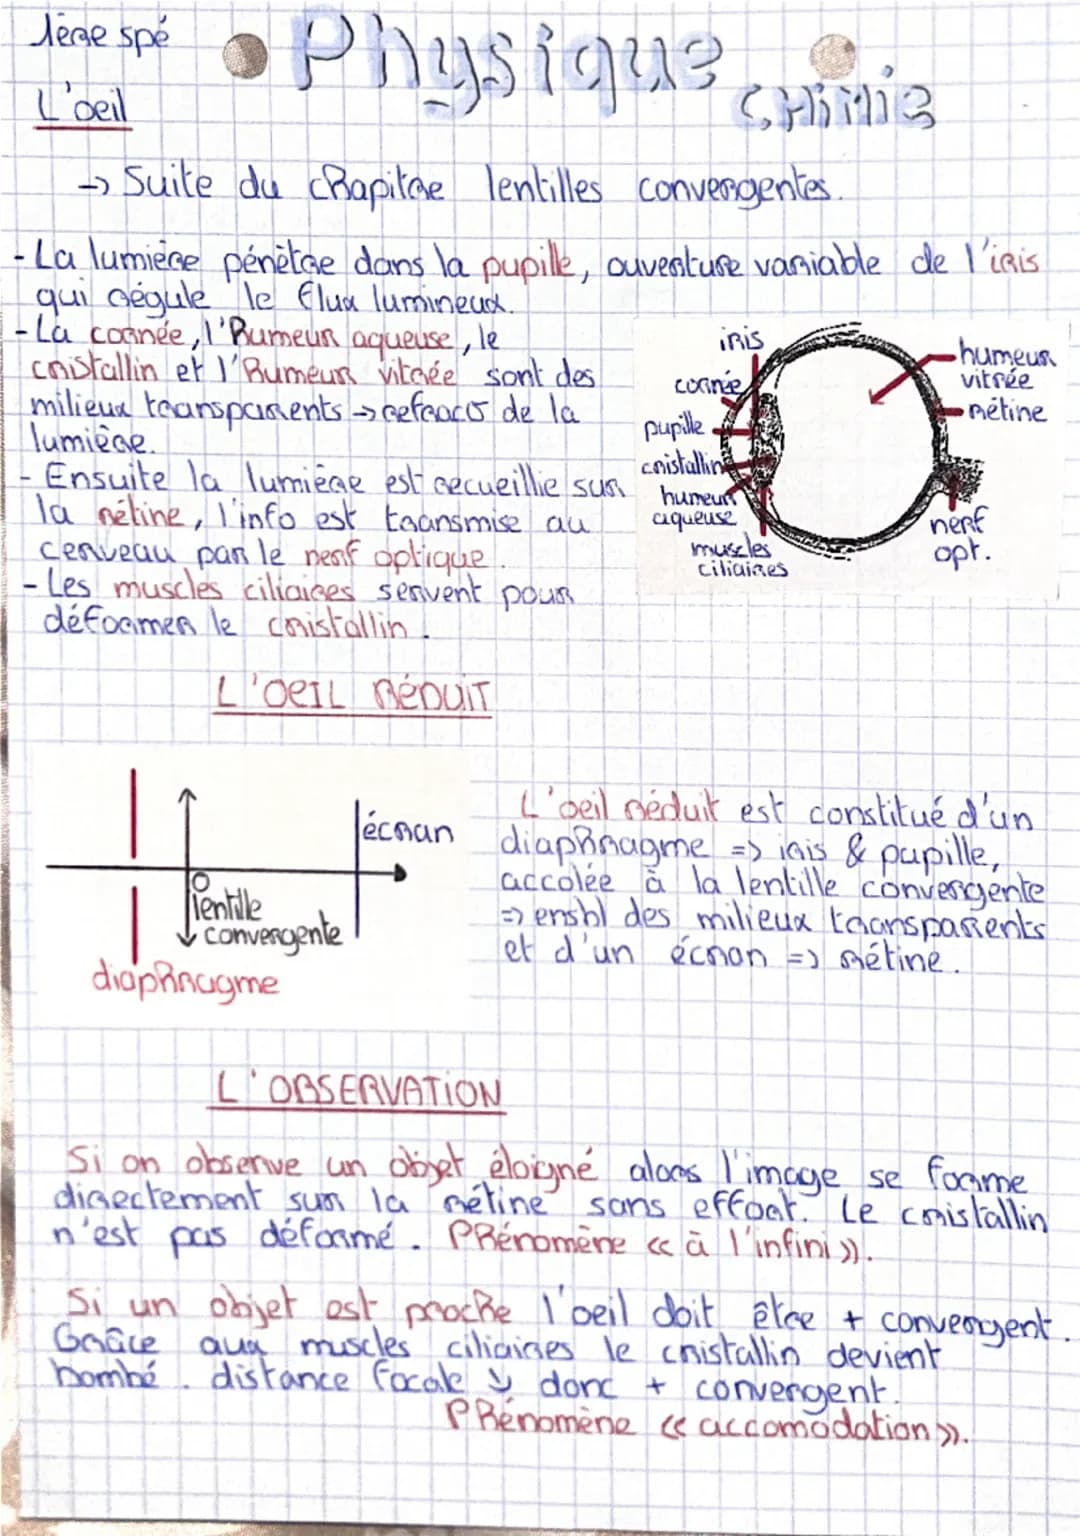 1ère spé
Physique
CHiMie
L'oeil
→ Suite du chapitre lentilles convergentes.
- La lumière pénètre dans la pupille, ouverture variable de l'iris
qui régule le flux lumineux.
- La cornée, l'humeur aqueuse, le
cristallin et l'humeur vitrée sont des
milieux transparents → refracto de la
lumière.
- Ensuite la lumière est recueillie sur
la rétine, l'info est transmise au
cerveau par le nerf optique.
- Les muscles ciliaires servent pour
déformer le cristallin.
iris
cornée
pupille
cristallin
humeur
aqueuse
muscles
ciliaires
humeur
vitrée
rétine
nerf
opt.
L'OEIL RÉDUIT
écran
O
lentille
convergente
diaphragme
L'oeil réduit est constitué d'un
diaphragme => iris & pupille,
accolée à la lentille convergente
=> ensbl des milieux transparents
et d'un écran => rétine.
L'OBSERVATION
Si on observe un objet éloigné alors l'image se forme
directement sur la rétine sans effort. Le cristallin
n'est pas déformé. Phénomène « à l'infini ».
Si un objet est proche l'oeil doit être + convergent.
Grâce aux muscles ciliaires le cristallin devient
bombé. distance focale ↘ donc + convergent.
Phénomène « accomodation ».